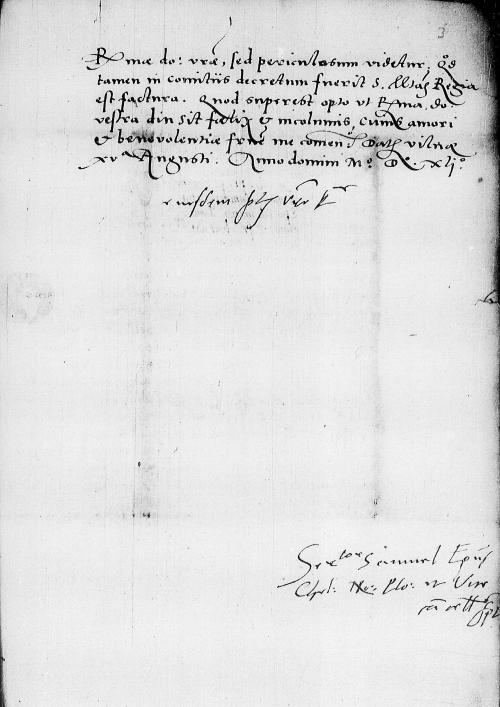 3
R mae do: vrae, sed periculosum videtur, qd
tamen in comitiis decretum fuerit S. Mtas Regia
est factura. Quod superest opto ut R ma. do.
vestra diu sit faelix & incolumis, Cuius amori
& benevolentiae frne me comen. Dat vilnae
xv a Augusti. Anno domini Mo. D. xljo.
eiusdem
Samuel Epus
et Vice